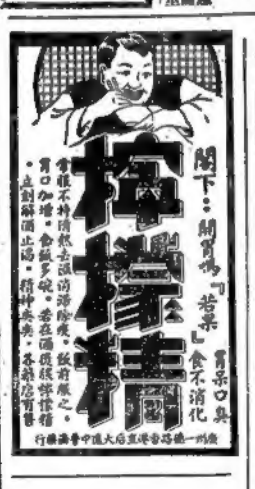 閣下：開胃嗎『若果』
胃呆口臭
食不消化
檸檬精
常服不特清熱去滋消滯除痰。飯前服之。
胃口加增。食飯多碗。若在酒後服檸檬精
。立刻解酒止渴。精神奕奕。各藥店有售
廣州一德路香港皇后大道中